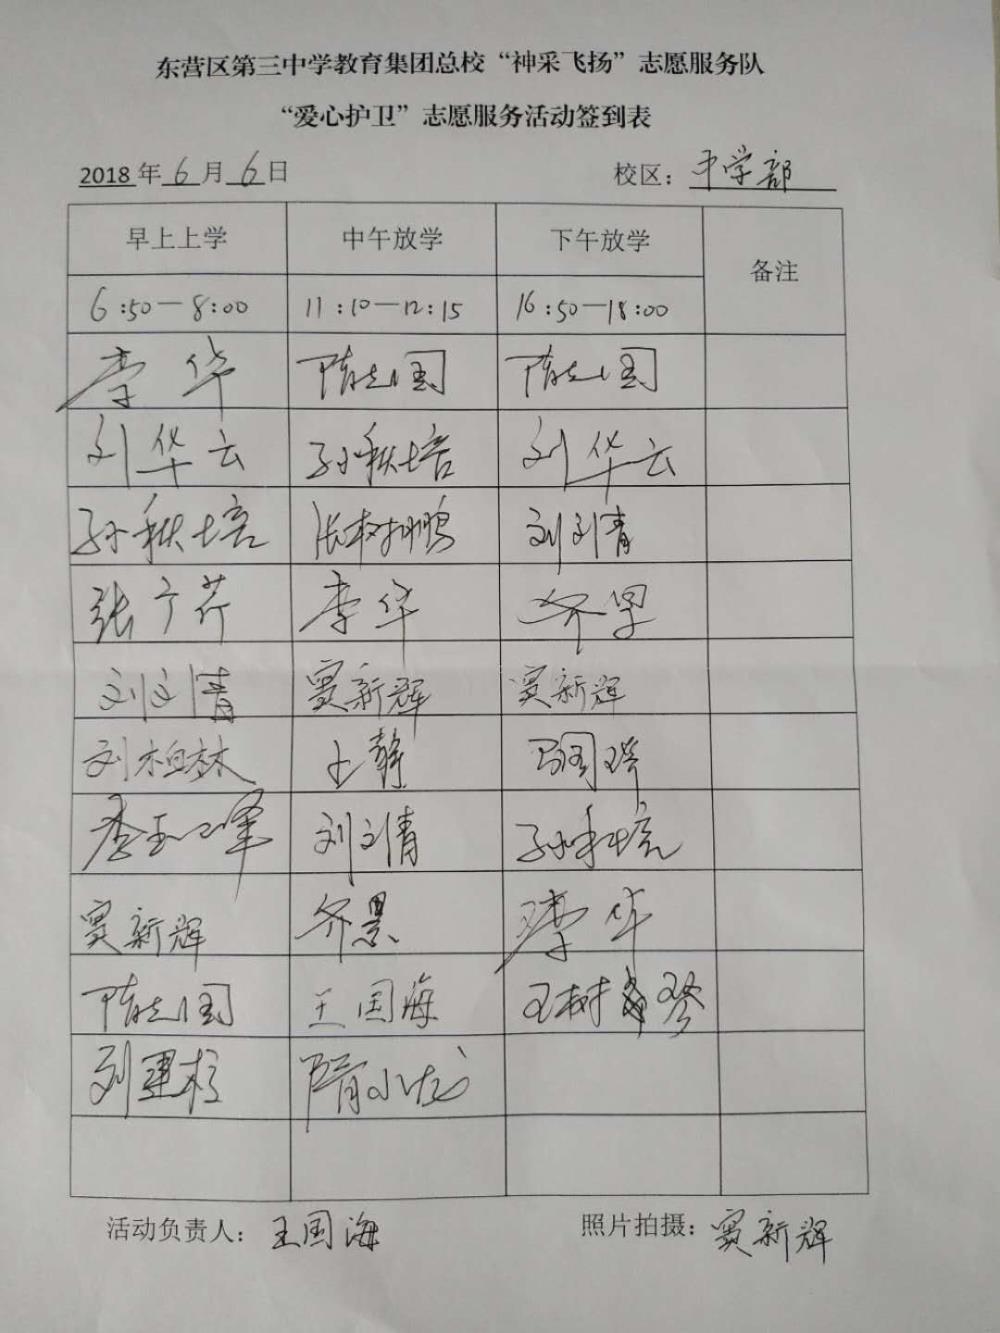 东营区第三中学教育集团总校“神采飞扬”志愿服务队
“爱心护卫”志愿服务活动签到表
2018年6月6日 校区：中学部
早上上学 中午放学 下午放学 备注
6:50—8:00 11:10—12:15 16:50—18:00
李华 隋志国 隋志国
刘华云 孙秋培 刘华云
孙秋培 张树鹏 刘文清
张广芹 李华 齐军
刘文清 窦新辉 窦新辉
刘柏林 王静
刘文清 孙秋培
窦新辉 李华
隋志国 王国海 王树琴
隋小龙
活动负责人：王国海 照片拍摄：窦新辉